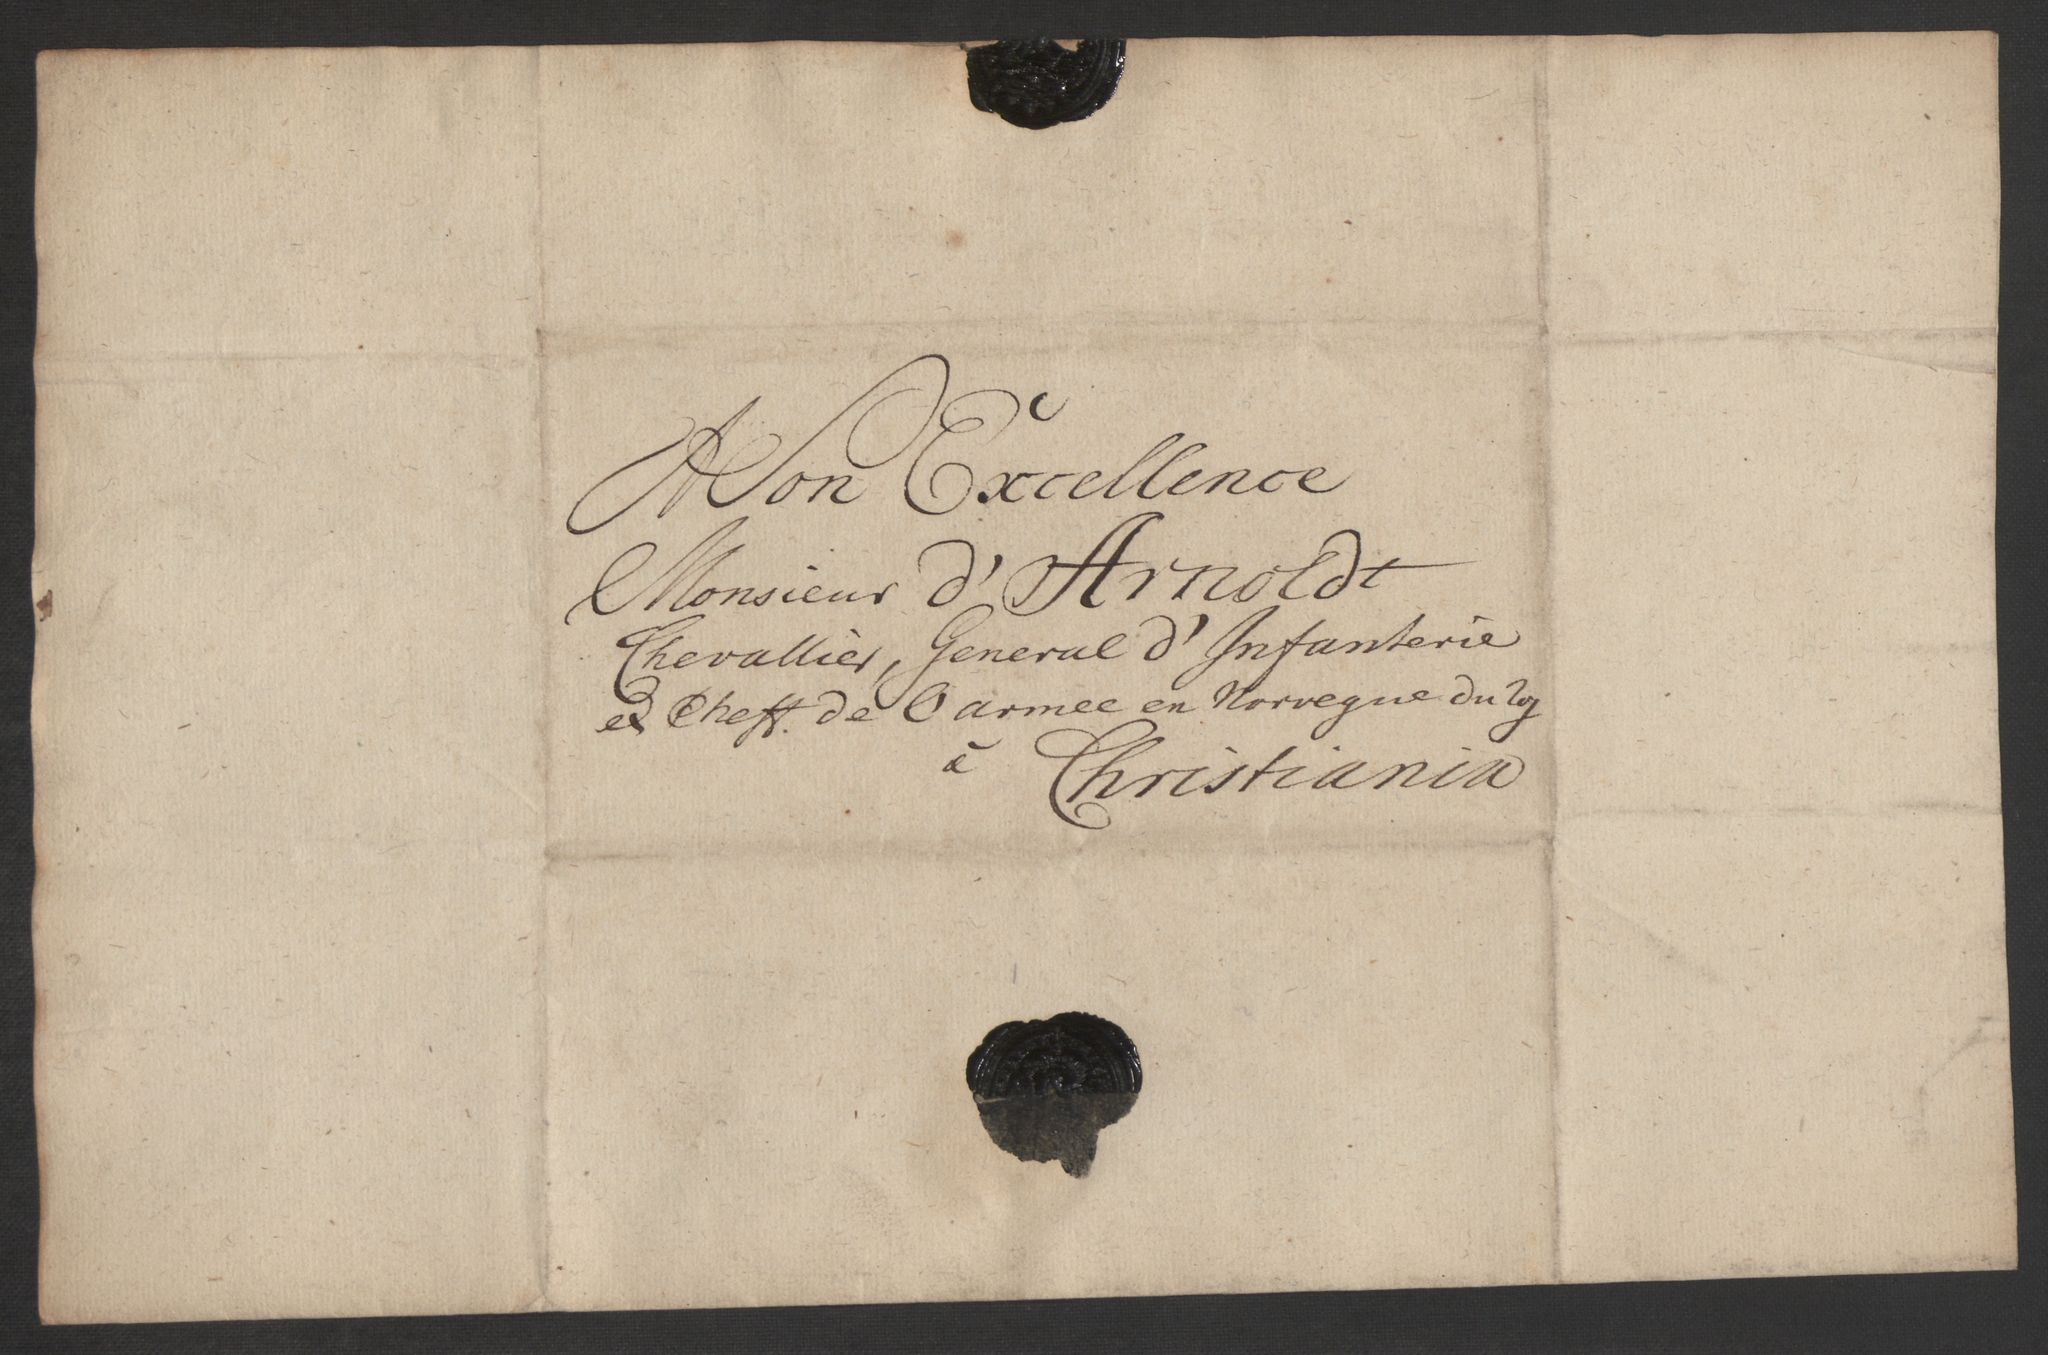 A Son Excellence
Monsieur d' Arnoldt
Chevallier, General d' Infanterie
et Cheff. de l armee en Norvegue du Roy
à Christiania